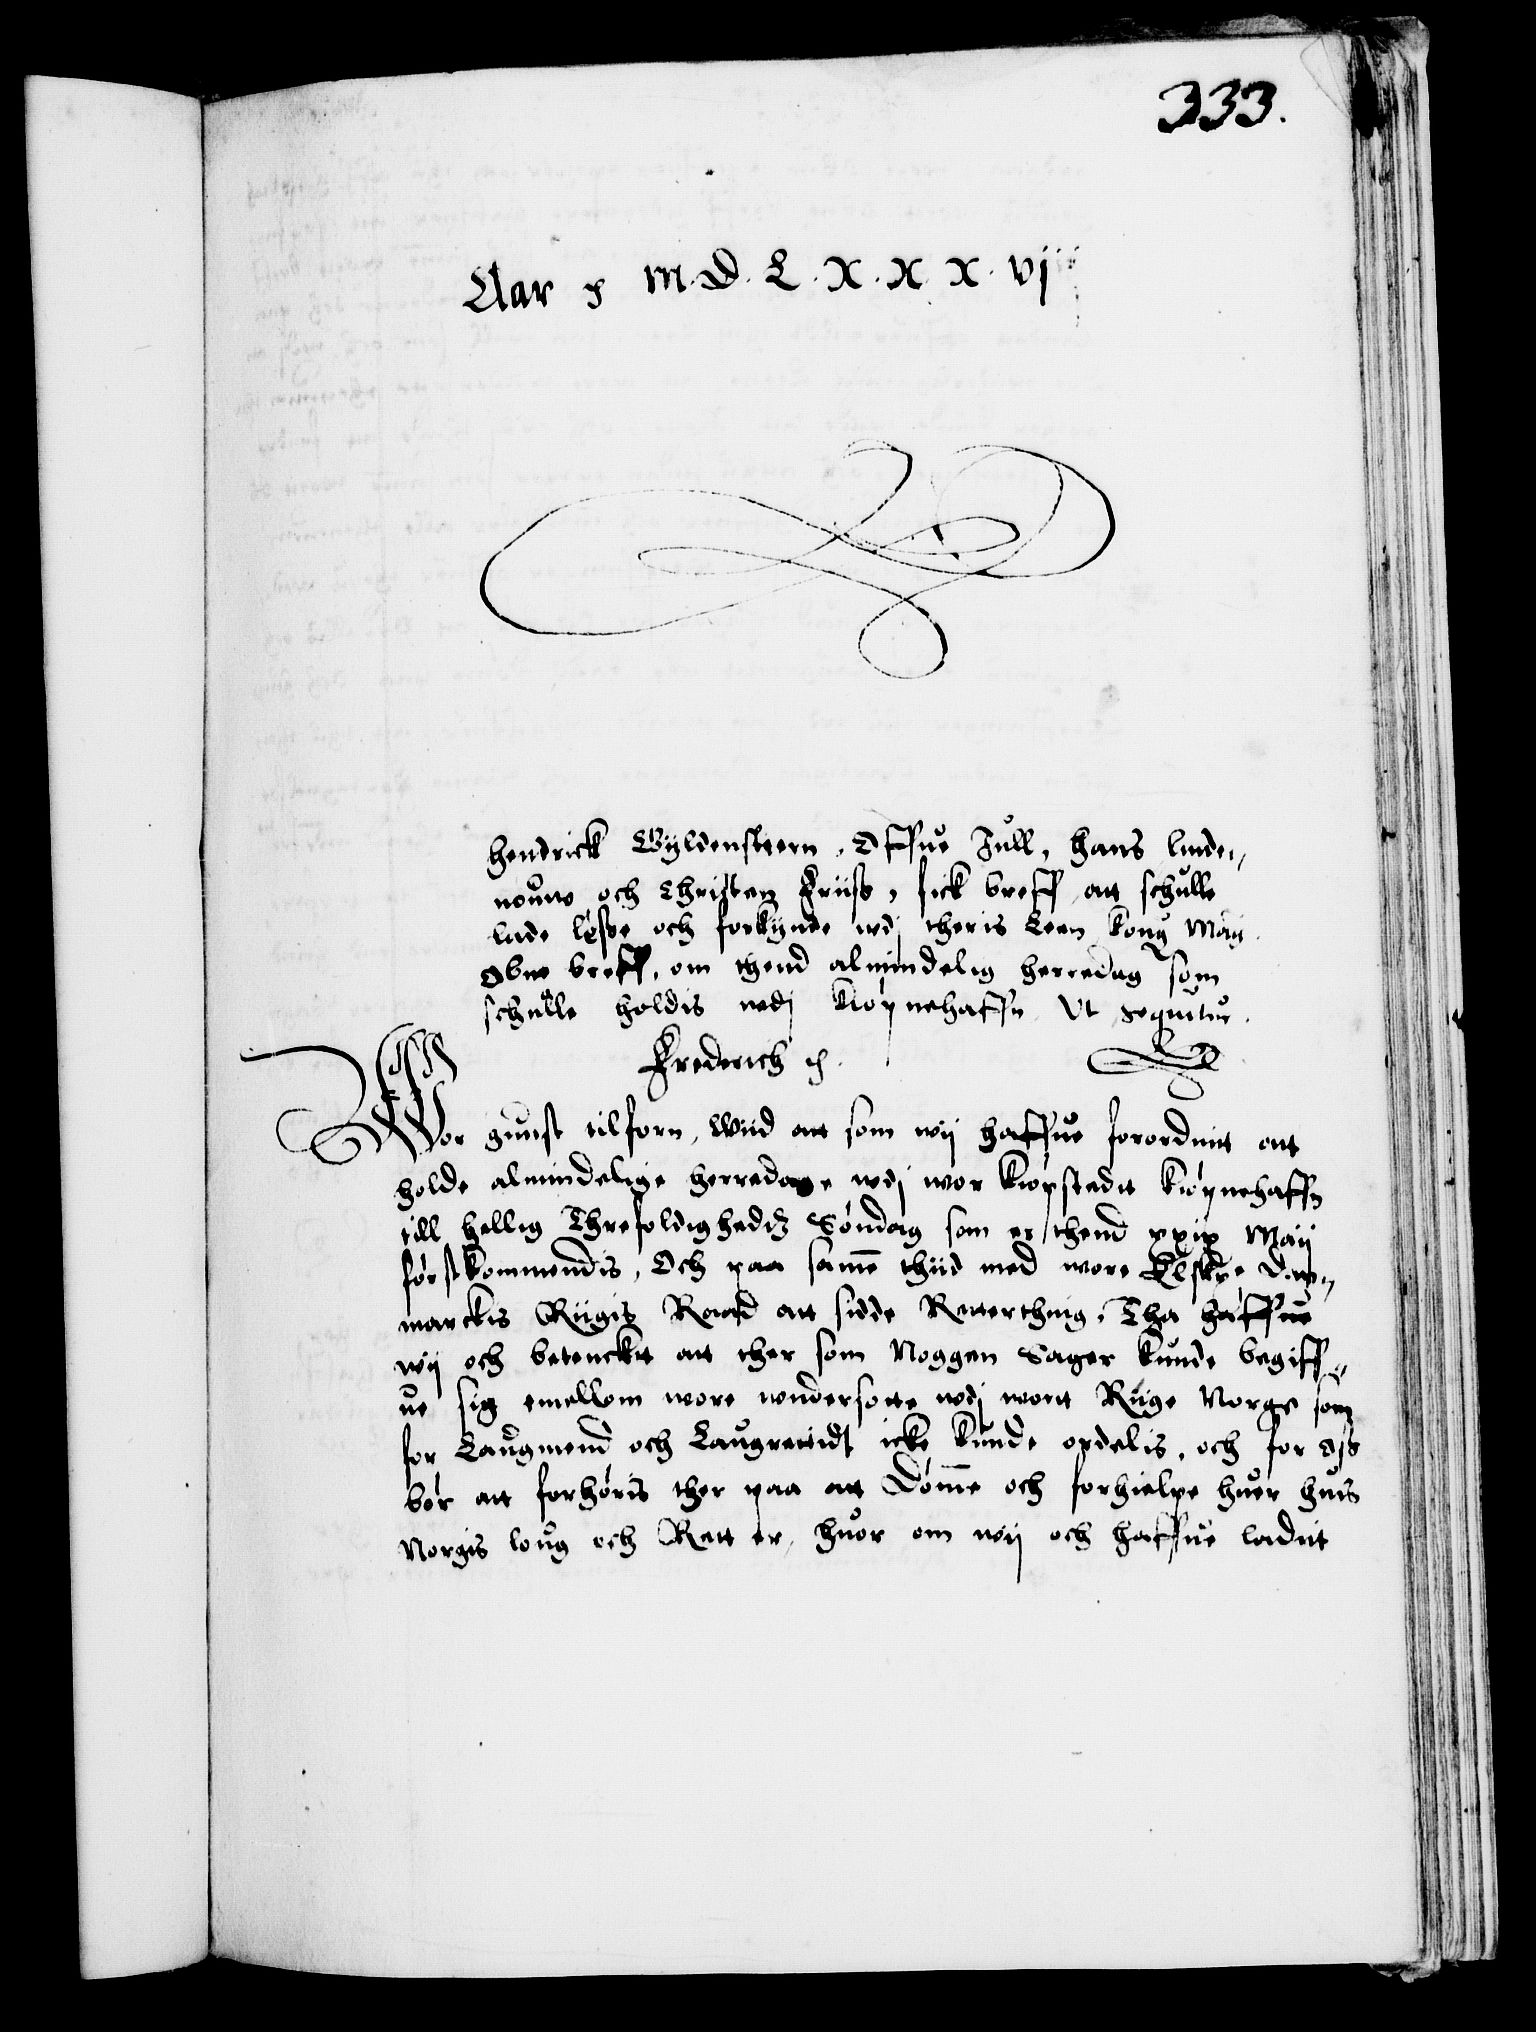 333.
Aar ꝛc M.D.L.X.X.X.vj
Hendrick Gÿldenstiern, Offue Jull, Hans Linde,,
nouw och Christen Friiss, fick breff att schulle
lade lesße och forkynde udj theris Leen kong: Maij:
obne breff, om thend almindelig herredag som
schulle holdis wdj Kiøpnehaffn Vt sequitur.
Frederich ꝛc.
Wor gunst tilforn, Wiid att som wij haffue forordnitt att
holde almindelige herredage wdj wor kiøpstedt Kiøpnehaffn
till hellig Threfoldighedz Søndag som er thend xxix Maij
førstkommendis, Och paa samme thiid med wore Elskte Dan,,
marckis Riigis Raad att sidde Retterthing, Tha haffue
wij och betenckt att ther som Noggen Sager kunde begiff,,
ue sig emellom wore wndersotte wdj wortt Riige Norge som
for Laugmend och Laugrettidt icke kunde ordelis, och for oss
bør att forhøris ther paa att Dømme och forhielpe huer huis
Norgis loug och Rett er, huor om wij och haffue ladiit